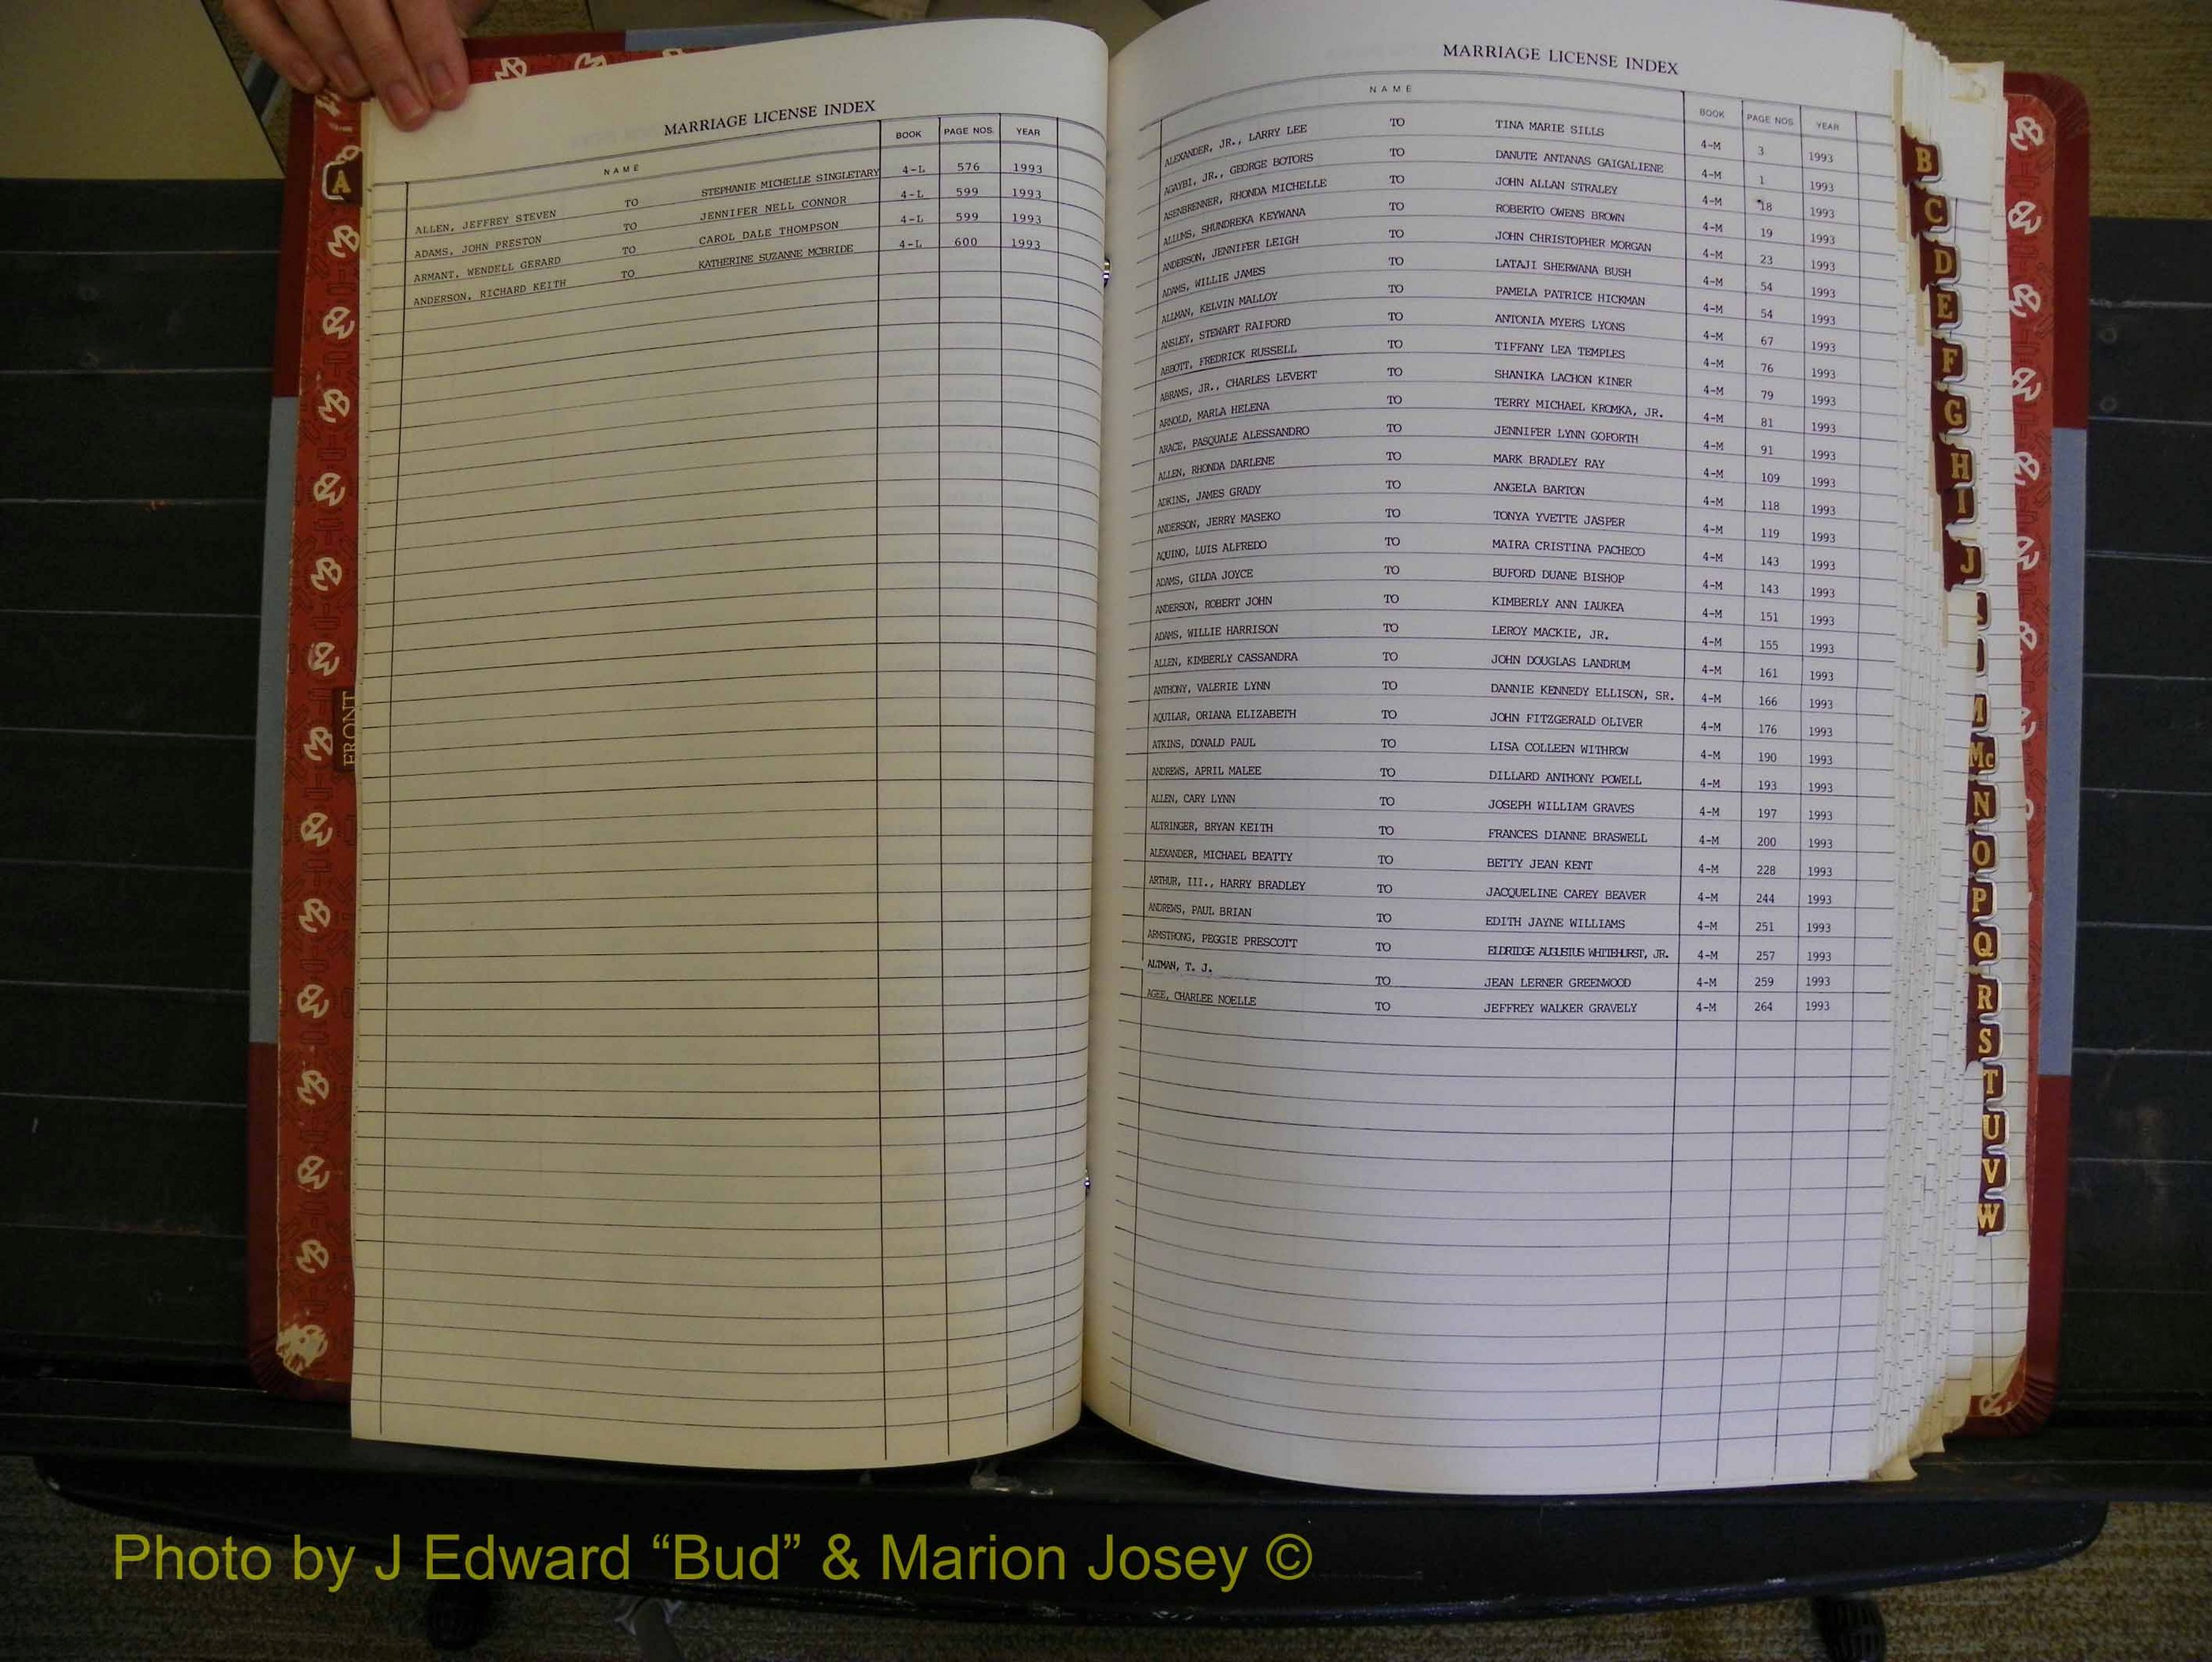 MARRIAGE LICENSE INDEX
NAME BOOK PAGE NOS. YEAR
ALLEN, JEFFREY STEVEN TO STEPHANIE MICHELLE SINGLETARY 4-L 576 1993
ADAMS, JOHN PRESTON TO JENNIFER NELL CONNOR 4-L 599 1993
ARMANT, WENDELL GERARD TO CAROL DALE THOMPSON 4-L 599 1993
ANDERSON, RICHARD KEITH TO KATHERINE SUZANNE MCBRIDE 4-L 600 1993
A
FRONT
MARRIAGE LICENSE INDEX
NAME BOOK PAGE NOS. YEAR
ALEXANDER, JR., LARRY LEE TO TINA MARIE SILLS 4-M 3 1993
AGAYBI, JR., GEORGE BOTORS TO DANUTE ANTANAS GAIGALIENE 4-M 1 1993
ASENBRENNER, RHONDA MICHELLE TO JOHN ALLAN STRALEY 4-M 18 1993
ALLUMS, SHUNDREKA KEYWANA TO ROBERTO OWENS BROWN 4-M 19 1993
ANDERSON, JENNIFER LEIGH TO JOHN CHRISTOPHER MORGAN 4-M 23 1993
ADAMS, WILLIE JAMES TO LATAJI SHERWANA BUSH 4-M 54 1993
ALLMAN, KELVIN MALLOY TO PAMELA PATRICE HICKMAN 4-M 54 1993
ANSLEY, STEWART RAIFORD TO ANTONIA MYERS LYONS 4-M 67 1993
ABBOTT, FREDRICK RUSSELL TO TIFFANY LEA TEMPLES 4-M 76 1993
ABRAMS, JR., CHARLES LEVERT TO SHANIKA LACHON KINER 4-M 79 1993
ARNOLD, MARLA HELENA TO TERRY MICHAEL KROMKA, JR. 4-M 81 1993
ARACE, PASQUALE ALESSANDRO TO JENNIFER LYNN GOFORTH 4-M 91 1993
ALLEN, RHONDA DARLENE TO MARK BRADLEY RAY 4-M 109 1993
ADKINS, JAMES GRADY TO ANGELA BARTON 4-M 118 1993
ANDERSON, JERRY MASEKO TO TONYA YVETTE JASPER 4-M 119 1993
AQUINO, LUIS ALFREDO TO MAIRA CRISTINA PACHECO 4-M 143 1993
ADAMS, GILDA JOYCE TO BUFORD DUANE BISHOP 4-M 143 1993
ANDERSON, ROBERT JOHN TO KIMBERLY ANN IAUKEA 4-M 151 1993
ADAMS, WILLIE HARRISON TO LEROY MACKIE, JR. 4-M 155 1993
ALLEN, KIMBERLY CASSANDRA TO JOHN DOUGLAS LANDRUM 4-M 161 1993
ANTHONY, VALERIE LYNN TO DANNIE KENNEDY ELLISON, SR. 4-M 166 1993
AQUILAR, ORIANA ELIZABETH TO JOHN FITZGERALD OLIVER 4-M 176 1993
ATKINS, DONALD PAUL TO LISA COLLEEN WITHROW 4-M 190 1993
ANDREWS, APRIL MALEE TO DILLARD ANTHONY POWELL 4-M 193 1993
ALLEN, CARY LYNN TO JOSEPH WILLIAM GRAVES 4-M 197 1993
ALTRINGER, BRYAN KEITH TO FRANCES DIANNE BRASWELL 4-M 200 1993
ALEXANDER, MICHAEL BEATTY TO BETTY JEAN KENT 4-M 228 1993
ARTHUR, III., HARRY BRADLEY TO JACQUELINE CAREY BEAVER 4-M 244 1993
ANDREWS, PAUL BRIAN TO EDITH JAYNE WILLIAMS 4-M 251 1993
ARMSTRONG, PEGGIE PRESCOTT TO ELDRIDGE AUGUSTUS WHITEHURST, JR. 4-M 257 1993
ALTMAN, T. J. TO JEAN LERNER GREENWOOD 4-M 259 1993
AGEE, CHARLEE NOELLE TO JEFFREY WALKER GRAVELY 4-M 264 1993
B
C
D
E
F
G
H
I
J
M
Mc
N
O
P
Q
R
S
T
U
V
W
Photo by J Edward “Bud” & Marion Josey ©